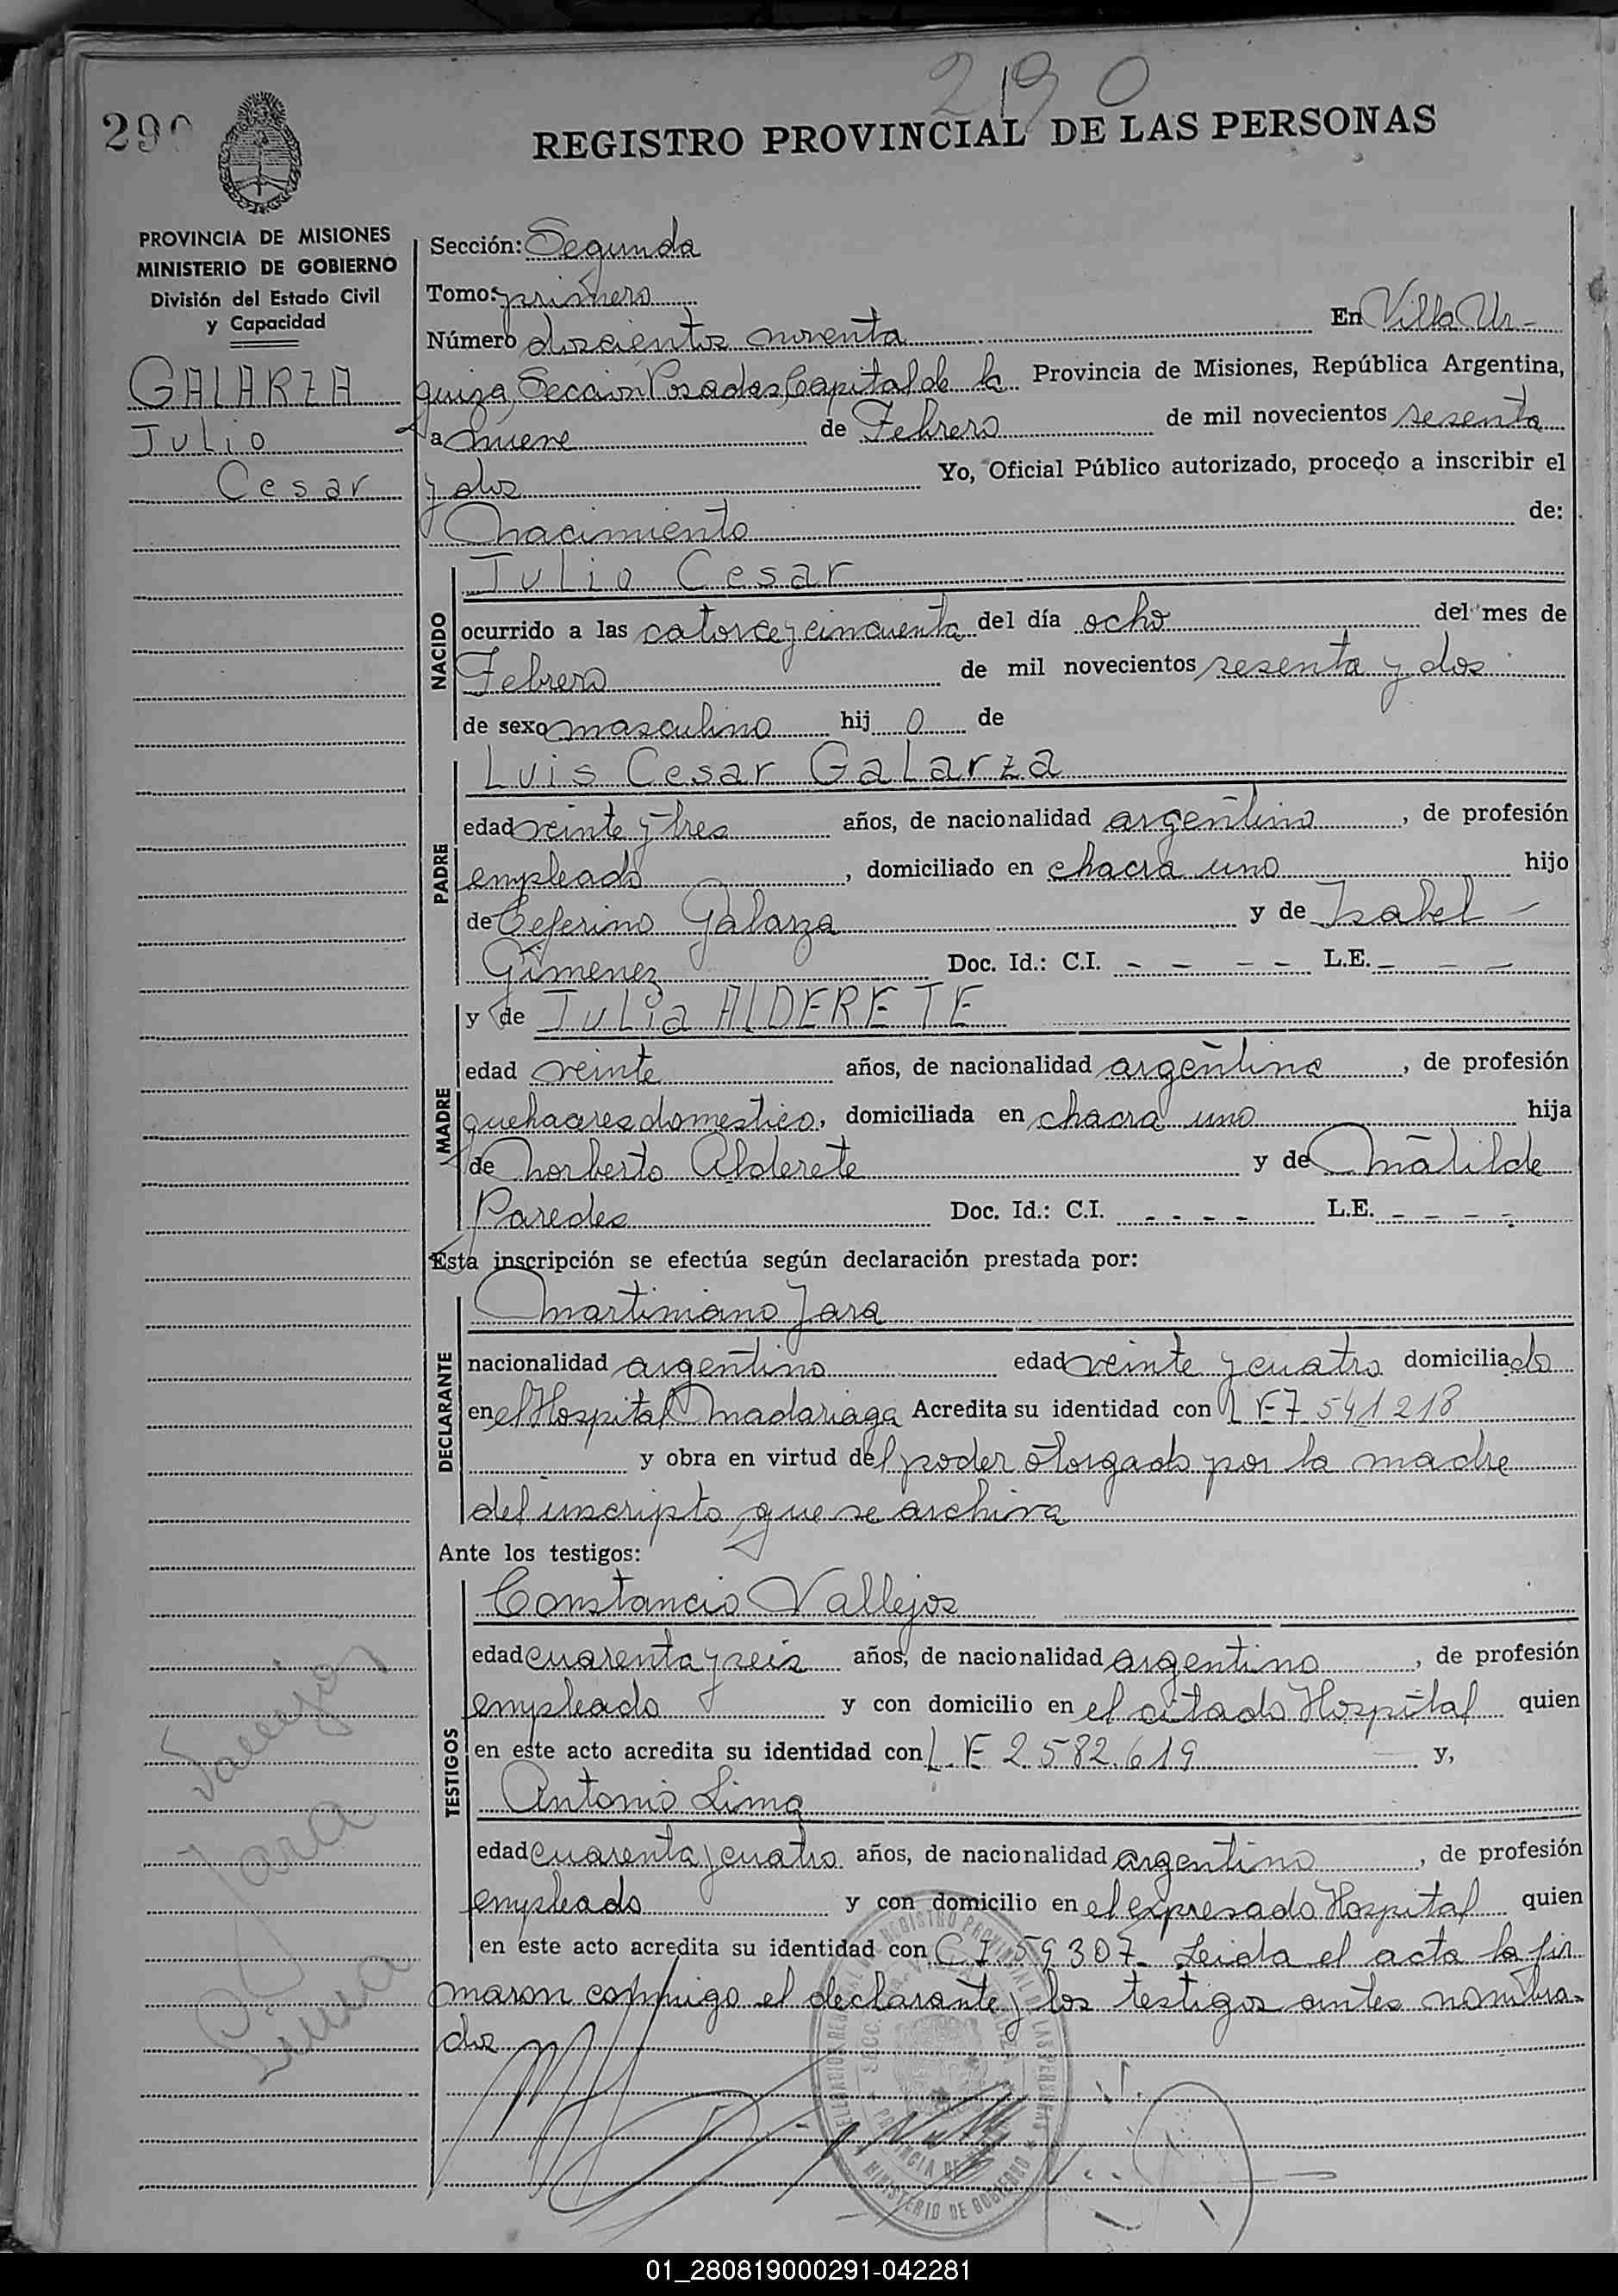 2190
290
REGISTRO PROVINCIAL DE LAS PERSONAS
PROVINCIA DE MISIONES
MINISTERIO DE GOBIERNO
División del Estado Civil
y Capacidad
GALARZA
Julio
Cesar
Sección: Segunda
Tomo: primero
Número doscientos noventa En Villa Ur-
quiza, Sección Posadas, Capital de la Provincia de Misiones, República Argentina,
a nueve de Febrero de mil novecientos sesenta
y dos Yo, Oficial Público autorizado, procedo a inscribir el
Nacimiento de:
NACIDO
Julio Cesar
ocurrido a las catorce y cincuenta del día ocho del mes de
Febrero de mil novecientos sesenta y dos
de sexo masculino hij o de
PADRE
Luis Cesar Galarza
edad veinte y tres años, de nacionalidad argentino, de profesión
empleado, domiciliado en chacra uno hijo
de Ceferino Galarza y de Isabel -
Gimenez Doc. Id.: C.I. - - - - L.E. - - -
MADRE
y de Julia ALDERETE
edad veinte años, de nacionalidad argentina, de profesión
quehaceres domestico, domiciliada en chacra uno hija
de Norberto Alderete y de Matilde
Paredes Doc. Id.: C.I. - - - - L.E. - - - -
Esta inscripción se efectúa según declaración prestada por:
DECLARANTE
Martiniano Jara
nacionalidad argentino edad veinte y cuatro domiciliado
en el Hospital Madariaga Acredita su identidad con L E 7.541218
y obra en virtud del poder otorgado por la madre
del inscripto que se archiva
Ante los testigos:
TESTIGOS
Constancio Vallejos
edad cuarenta y seis años, de nacionalidad argentino, de profesión
empleado y con domicilio en el citado Hospital quien
en este acto acredita su identidad con L.E 2.582.619 y,
Antonio Lima
edad cuarenta y cuatro años, de nacionalidad argentino, de profesión
empleado y con domicilio en el expresado Hospital quien
en este acto acredita su identidad con C I 59307. Leida el acta la fir
maron conmigo el declarante y los testigos antes nombra-
dos
Vallejos
Jara
Lima
MINISTERIO DE GOBIERNO
01_280819000291-042281